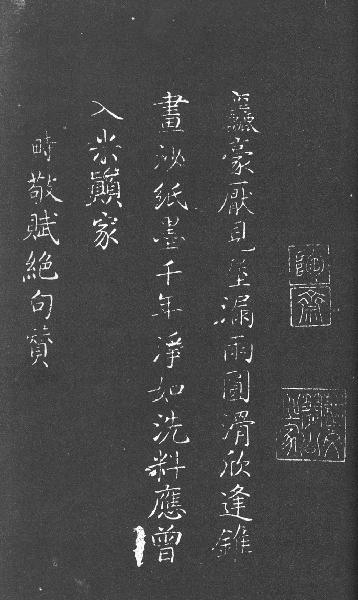 陶齋
麤豪厭見漏雨圓滑欣逢錐
畫沙紙墨千年淨如洗料應曾
入米顛家
時敬賦絕句贊